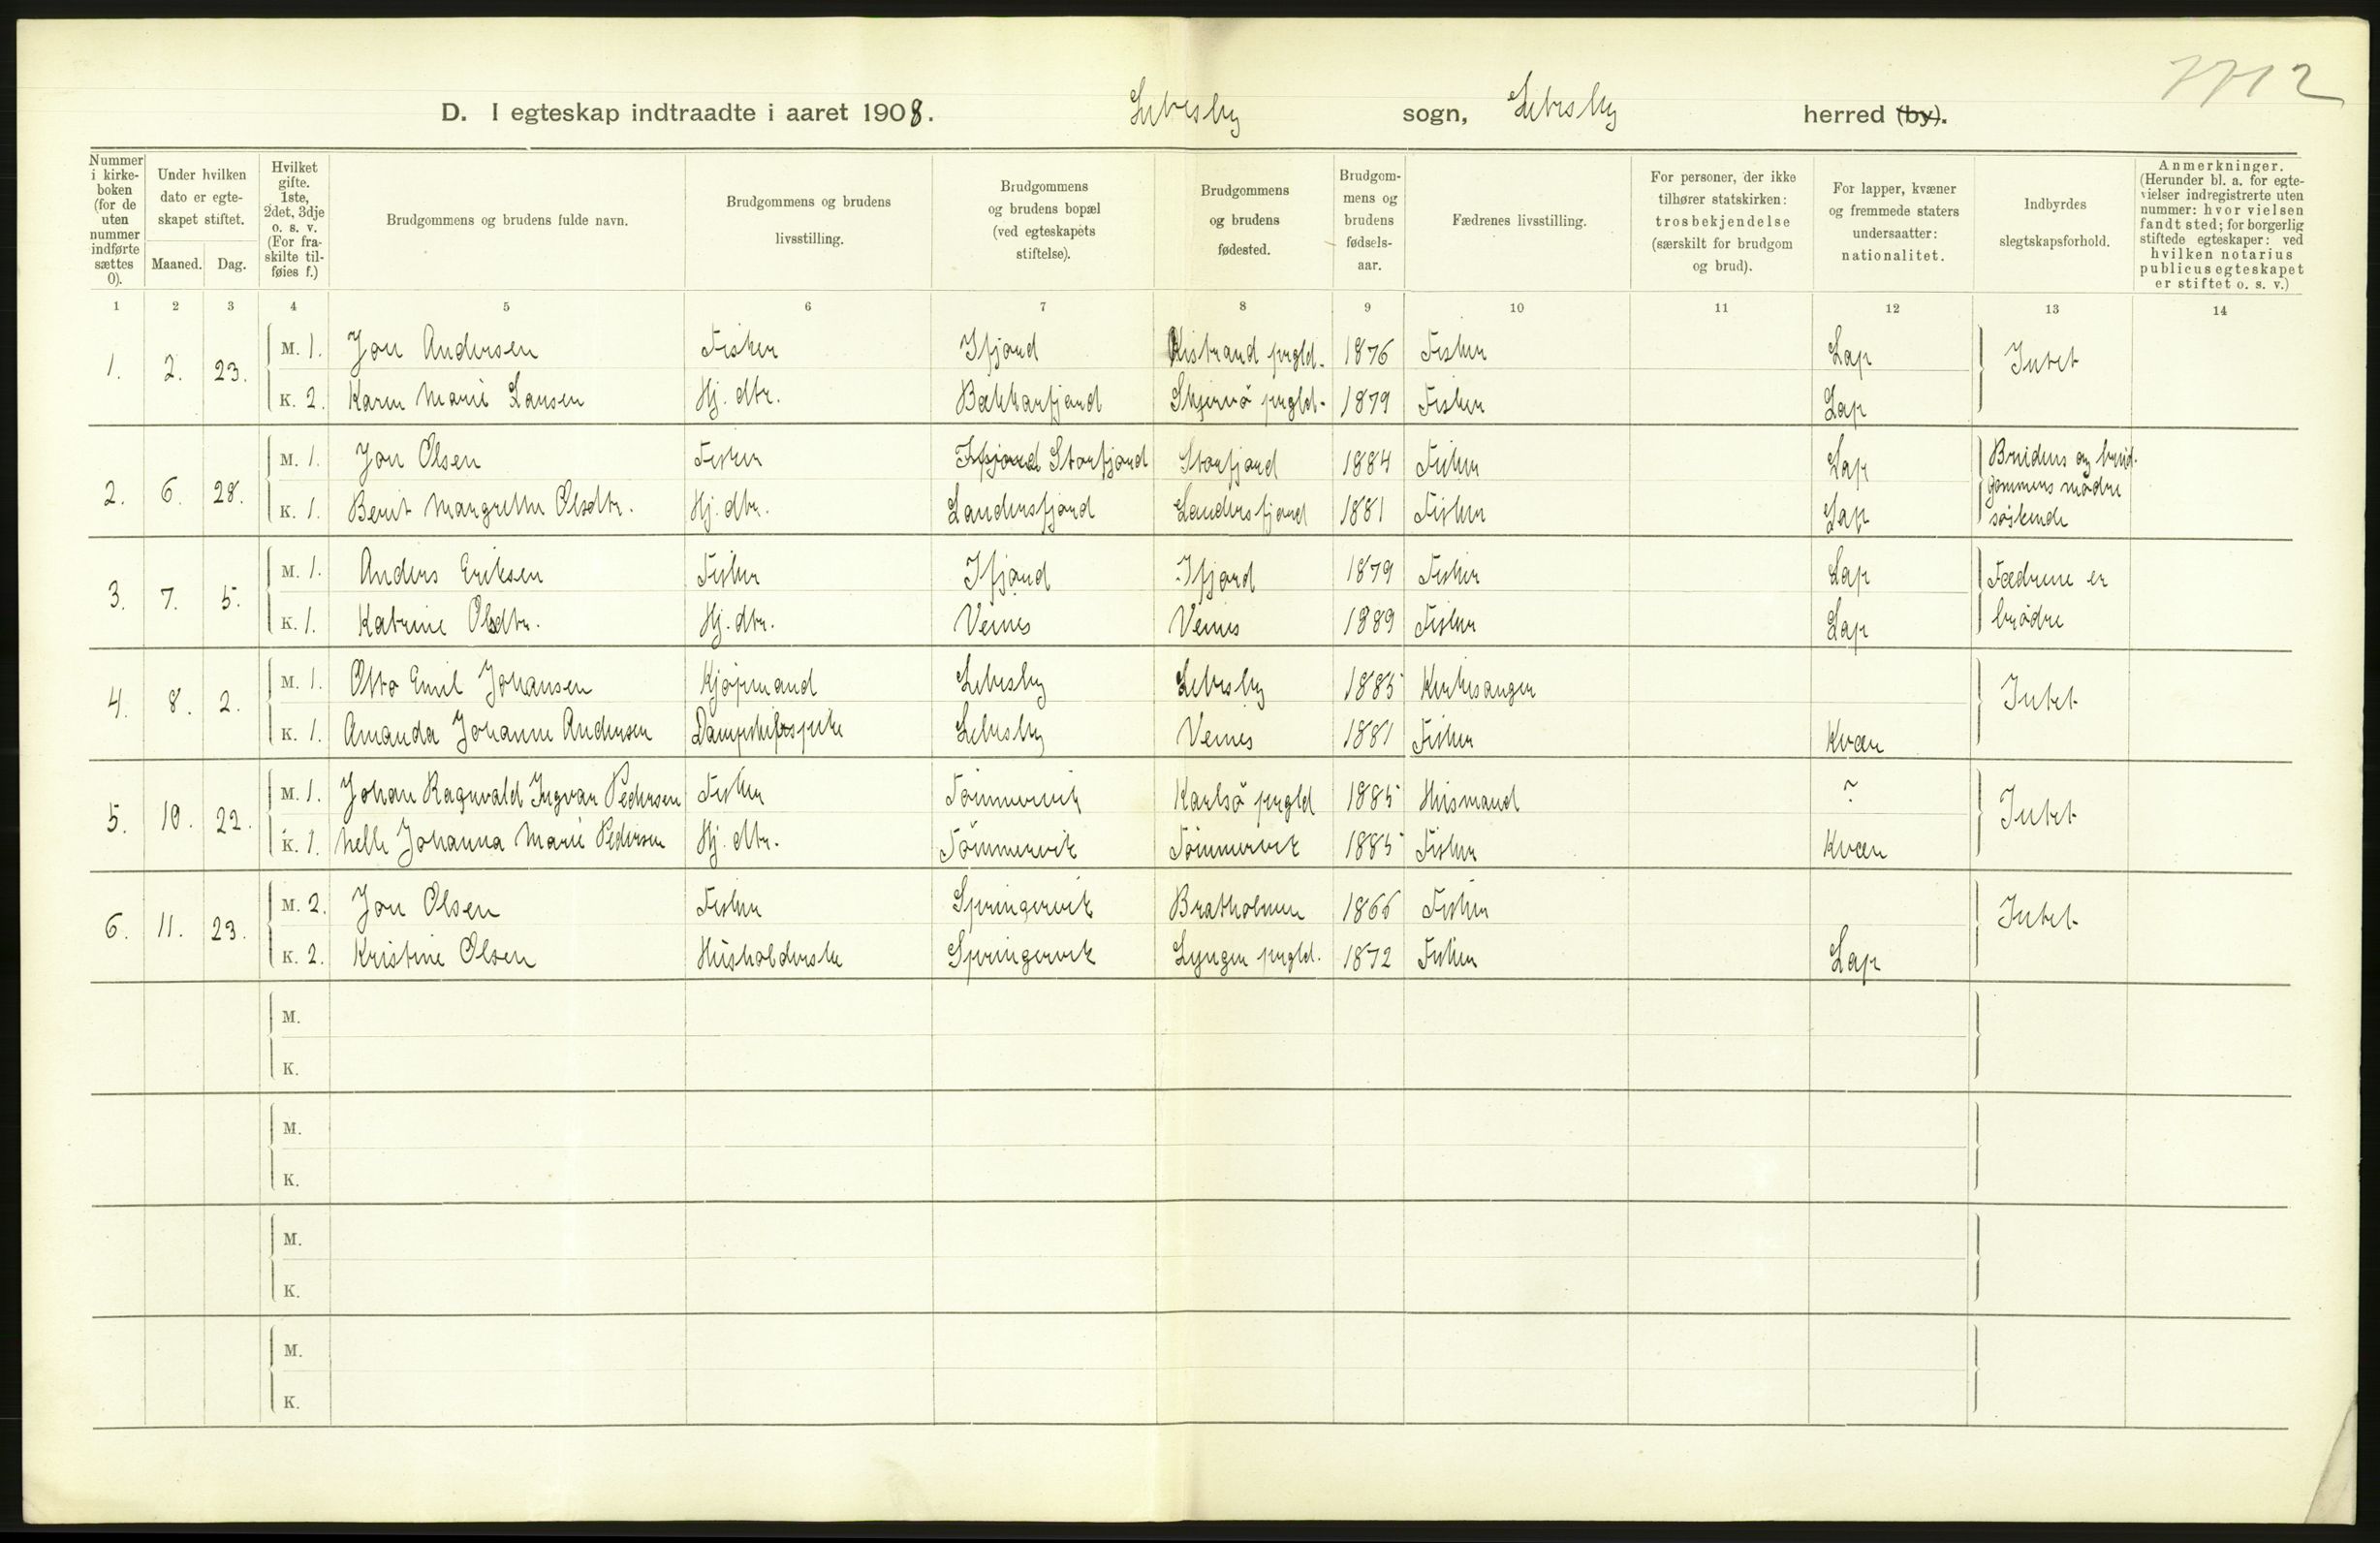 7712
D. I egteskap indtraadte i aaret 1908. Lebesby sogn, Lebesby herred (by).
Nummer i kirke-boken (for de uten nummer indførte sættes 0).
Under hvilken dato er egte-skapet stiftet.
Maaned. Dag.
Hvilket gifte. 1ste, 2det, 3dje o. s. v. (For fra-skilte til-føies f.)
Brudgommens og brudens fulde navn.
Brudgommens og brudens livsstilling.
Brudgommens og brudens bopæl (ved egteskapets stiftelse).
Brudgommens og brudens fødested.
Brudgom-mens og brudens fødsels-aar.
Fædrenes livsstilling.
For personer, der ikke tilhører statskirken: trosbekjendelse (særskilt for brudgom og brud).
For lapper, kvæner og fremmede staters undersaatter: nationalitet.
Indbyrdes slegtskapsforhold.
Anmerkninger. (Herunder bl. a. for egte-vielser indregistrerte uten nummer: hvor vielsen fandt sted; for borgerlig stiftede egteskaper: ved hvilken notarius publicus egteskapet er stiftet o. s. v.)
1 2 3 4 5 6 7 8 9 10 11 12 13 14
1. 2. 23. M. 1. Jon Andersen Fisker Ifjord Kistrand prgld. 1876 Fisker Lap Intet
K. 2. Karen Marie Lansen Hj. dtr. Bekkarfjord Skjervö prgld. 1879 Fisker Lap
2. 6. 28. M. 1. Jon Olsen Fisker Ifjord Storfjord Storfjord 1884 Fisker Lap Brudens og brud-
gommens mødre
K. 1. Berit Margrethe Olsdtr. Hj. dtr. Landersfjord Landersfjord 1881 Fisker Lap søskende
3. 7. 5. M. 1. Anders Eriksen Fisker Ifjord Ifjord 1879 Fisker Lap Fædrene er
K. 1. Katrine Olsdtr. Hj. dtr. Veines Veines 1889 Fisker Lap brødre
4. 8. 2. M. 1. Otto Emil Johansen Kjøpmand Lebesby Lebesby 1885 Kirkesanger Intet
K. 1. Amanda Johanne Andersen Dampskibspike Lebesby Veines 1881 Fisker Kvæn
5. 10. 22. M. 1. Johan Ragnvald Ingvar Pedersen Fisker Tömmervik Karlsö prgld 1885 Husmand ? Intet
K. 1. Nelle Johanna Marie Pedersen Hj. dtr. Tömmervik Tömmervik 1885 Fisker Kvæn
6. 11. 23. M. 2. Jon Olsen Fisker Springervik Bratholmen 1866 Fisker Intet
K. 2. Kristine Olsen Husholderske Springervik Lyngen prgld. 1872 Fisker Lap
M.
K.
M.
K.
M.
K.
M.
K.